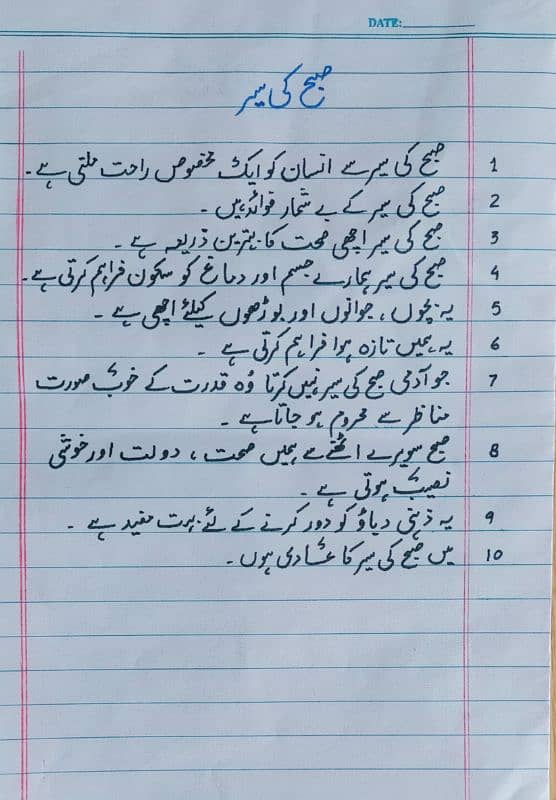 DATE:
صبح کی سیر
1 صبح کی سیر سے انسان کو ایک مخصوص راحت ملتی ہے۔
2 صبح کی سیر کے بے شمار فوائد ہیں۔
3 صبح کی سیر اچھی صحت کا بہترین ذریعہ ہے۔
4 صبح کی سیر ہمارے جسم اور دماغ کو سکون فراہم کرتی ہے۔
5 یہ بچوں، جوانوں اور بوڑھوں کیلئے اچھی ہے۔
6 یہ ہمیں تازہ ہوا فراہم کرتی ہے۔
7 جو آدمی صبح کی سیر نہیں کرتا وُہ قدرت کے خوب صورت
مناظر سے محروم ہو جاتا ہے۔
8 صبح سویرے اٹھنے سے ہمیں صحت، دولت اور خوشی
نصیب ہوتی ہے۔
9 یہ ذہنی دباؤ کو دور کرنے کے لئے بہت مفید ہے۔
10 میں صبح کی سیر کا عادی ہوں۔